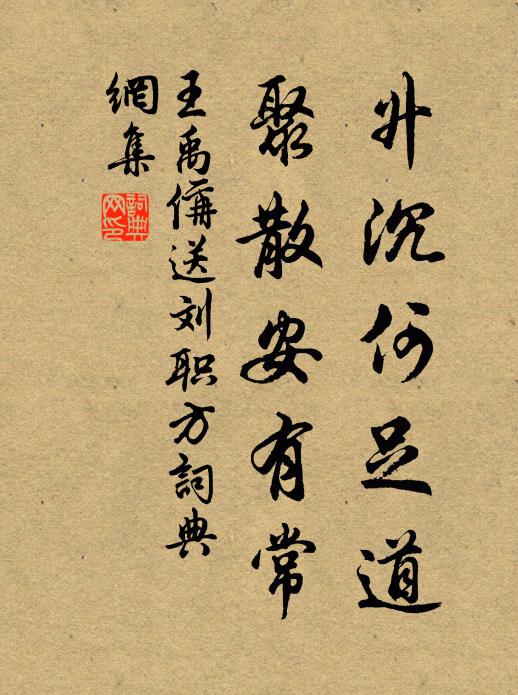 升沉何足道
聚散安有常
王禹偁送刘职方詞典
網集
詞典网印